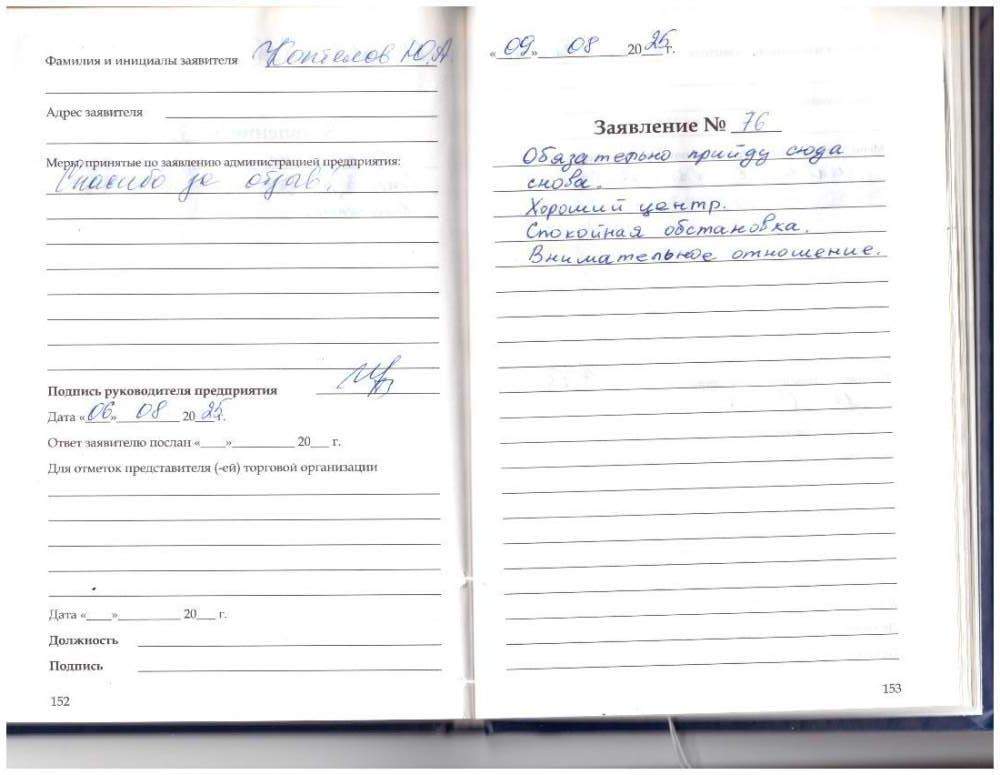 Фамилия и инициалы заявителя Коптелов Ю.А.
Адрес заявителя
Меры, принятые по заявлению администрацией предприятия:
Спасибо за отзыв!
Подпись руководителя предприятия
Дата «06» 08 2025 г.
Ответ заявителю послан «___»__________ 20___ г.
Для отметок представителя (-ей) торговой организации
Дата «____»__________ 20___ г.
Должность
Подпись
152
«09» 08 2025 г.
Заявление № 76
Обязательно прийду сюда
снова.
Хороший центр.
Спокойная обстановка.
Внимательное отношение.
153